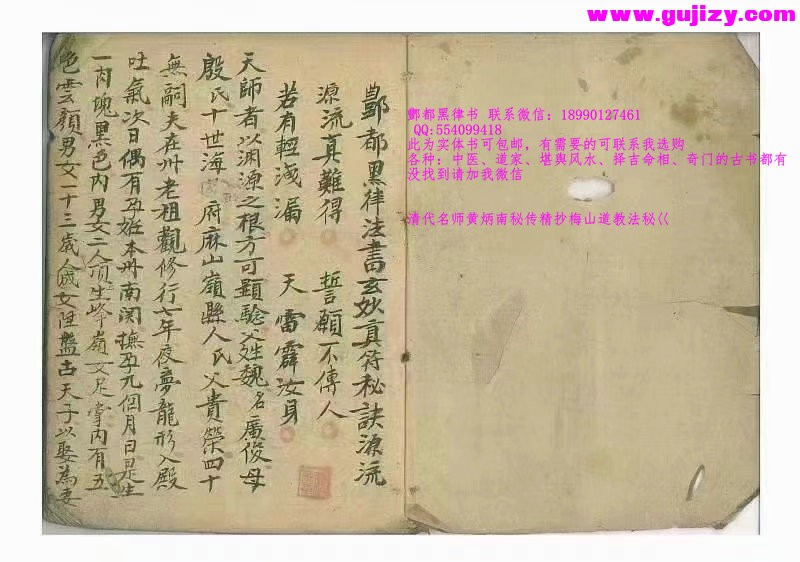 www.gujizy.com
酆都黑律书 联系微信：18990127461
QQ:554099418
此为实体书可包邮，有需要的可联系我选购
各种：中医、道家、堪舆风水、择吉命相、奇门的古书都有
没找到请加我微信
清代名师黄炳南秘传精抄梅山道教法秘巜
酆都黑律法書玄妙真符秘訣源流
源流真難得 誓願不傳人
若有輕洩漏 天雷霹汝身
天師者以渊源之根方可顕驗父姓魏名廣俊母
殷氏十世海 府麻山嶺縣人氏父貴榮四十
無嗣夫在州老祖觀修行七年夜夢龍形入殿
吐氣次日偶有孕姙本州南関撫孕九個月日是生
一肉塊黑色内男女二人頂生峰嶺女足掌内有五
色雲顔男女一十三歲人成女陞盤古天子以娶為妻